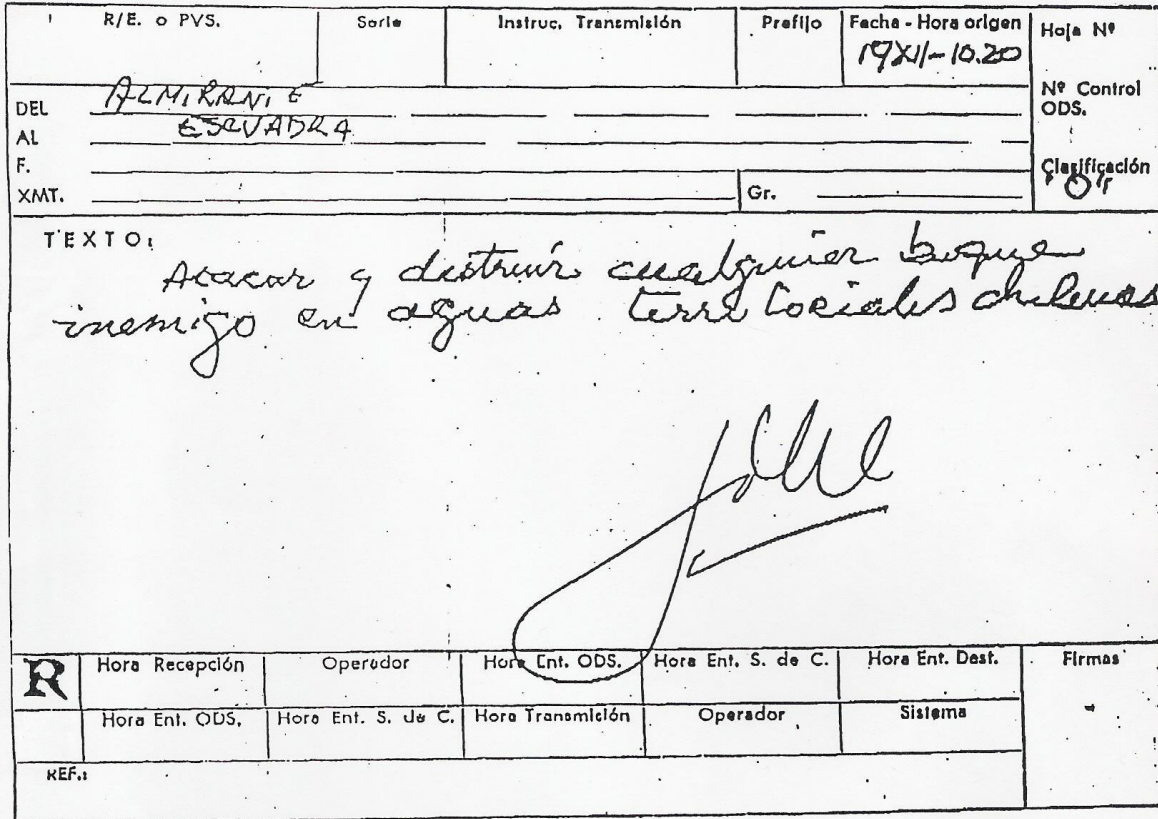 R/E. o PVS. Serie Instruc. Transmisión Prefijo Fecha - Hora origen Hoja Nº
19XII-10.20
Nº Control ODS.
DEL ALMIRANTE
AL ESCUADRA
F.
XMT. Gr.
Clasificación
"O"
TEXTO:
Atacar y destruir cualquier buque
inemigo en aguas territoriales chilenas
R Hora Recepción Operador Hora Ent. ODS. Hora Ent. S. de C. Hora Ent. Dest. Firmas
Hora Ent. ODS. Hora Ent. S. de C. Hora Transmición Operador Sistema
REF.: